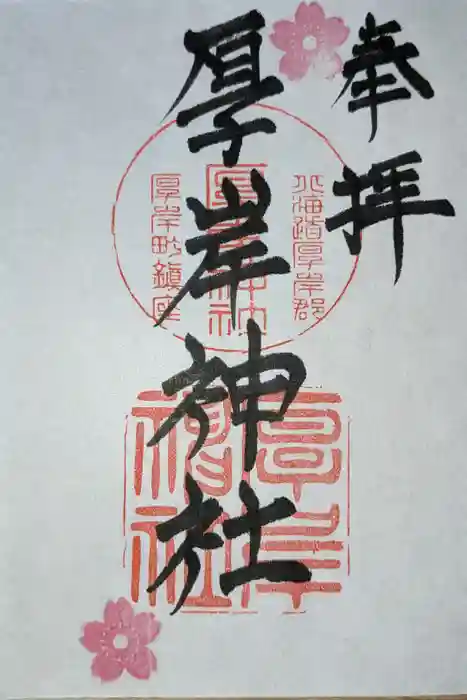 奉拝
厚岸神社
北海道厚岸郡
厚岸神社
厚岸町鎮座
厚岸神社